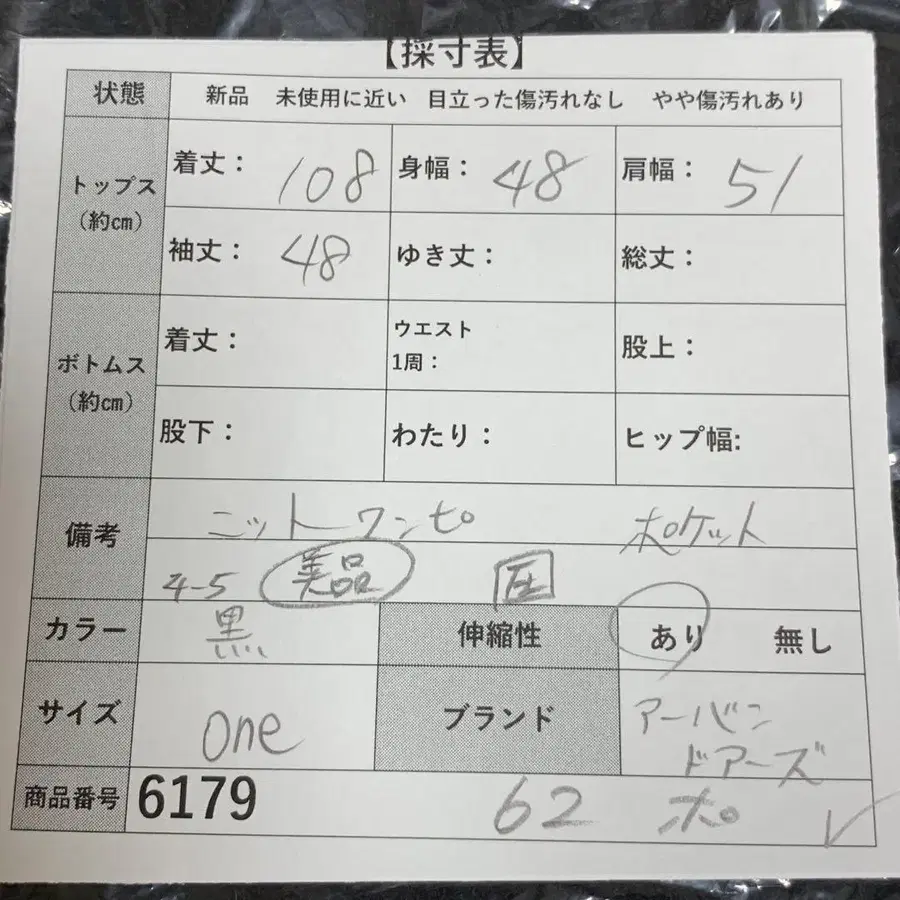 【採寸表】
状態 新品 未使用に近い 目立った傷汚れなし やや傷汚れあり
トップス（約cm） 着丈： 108 身幅： 48 肩幅： 51
袖丈： 48 ゆき丈： 総丈：
ボトムス（約cm） 着丈： ウエスト1周： 股上：
股下： わたり： ヒップ幅:
備考 ニットワンピ ポケット
4-5 美品 圧
カラー 黒 伸縮性 あり 無し
サイズ one ブランド アーバンドアーズ
商品番号 6179 62 ポ